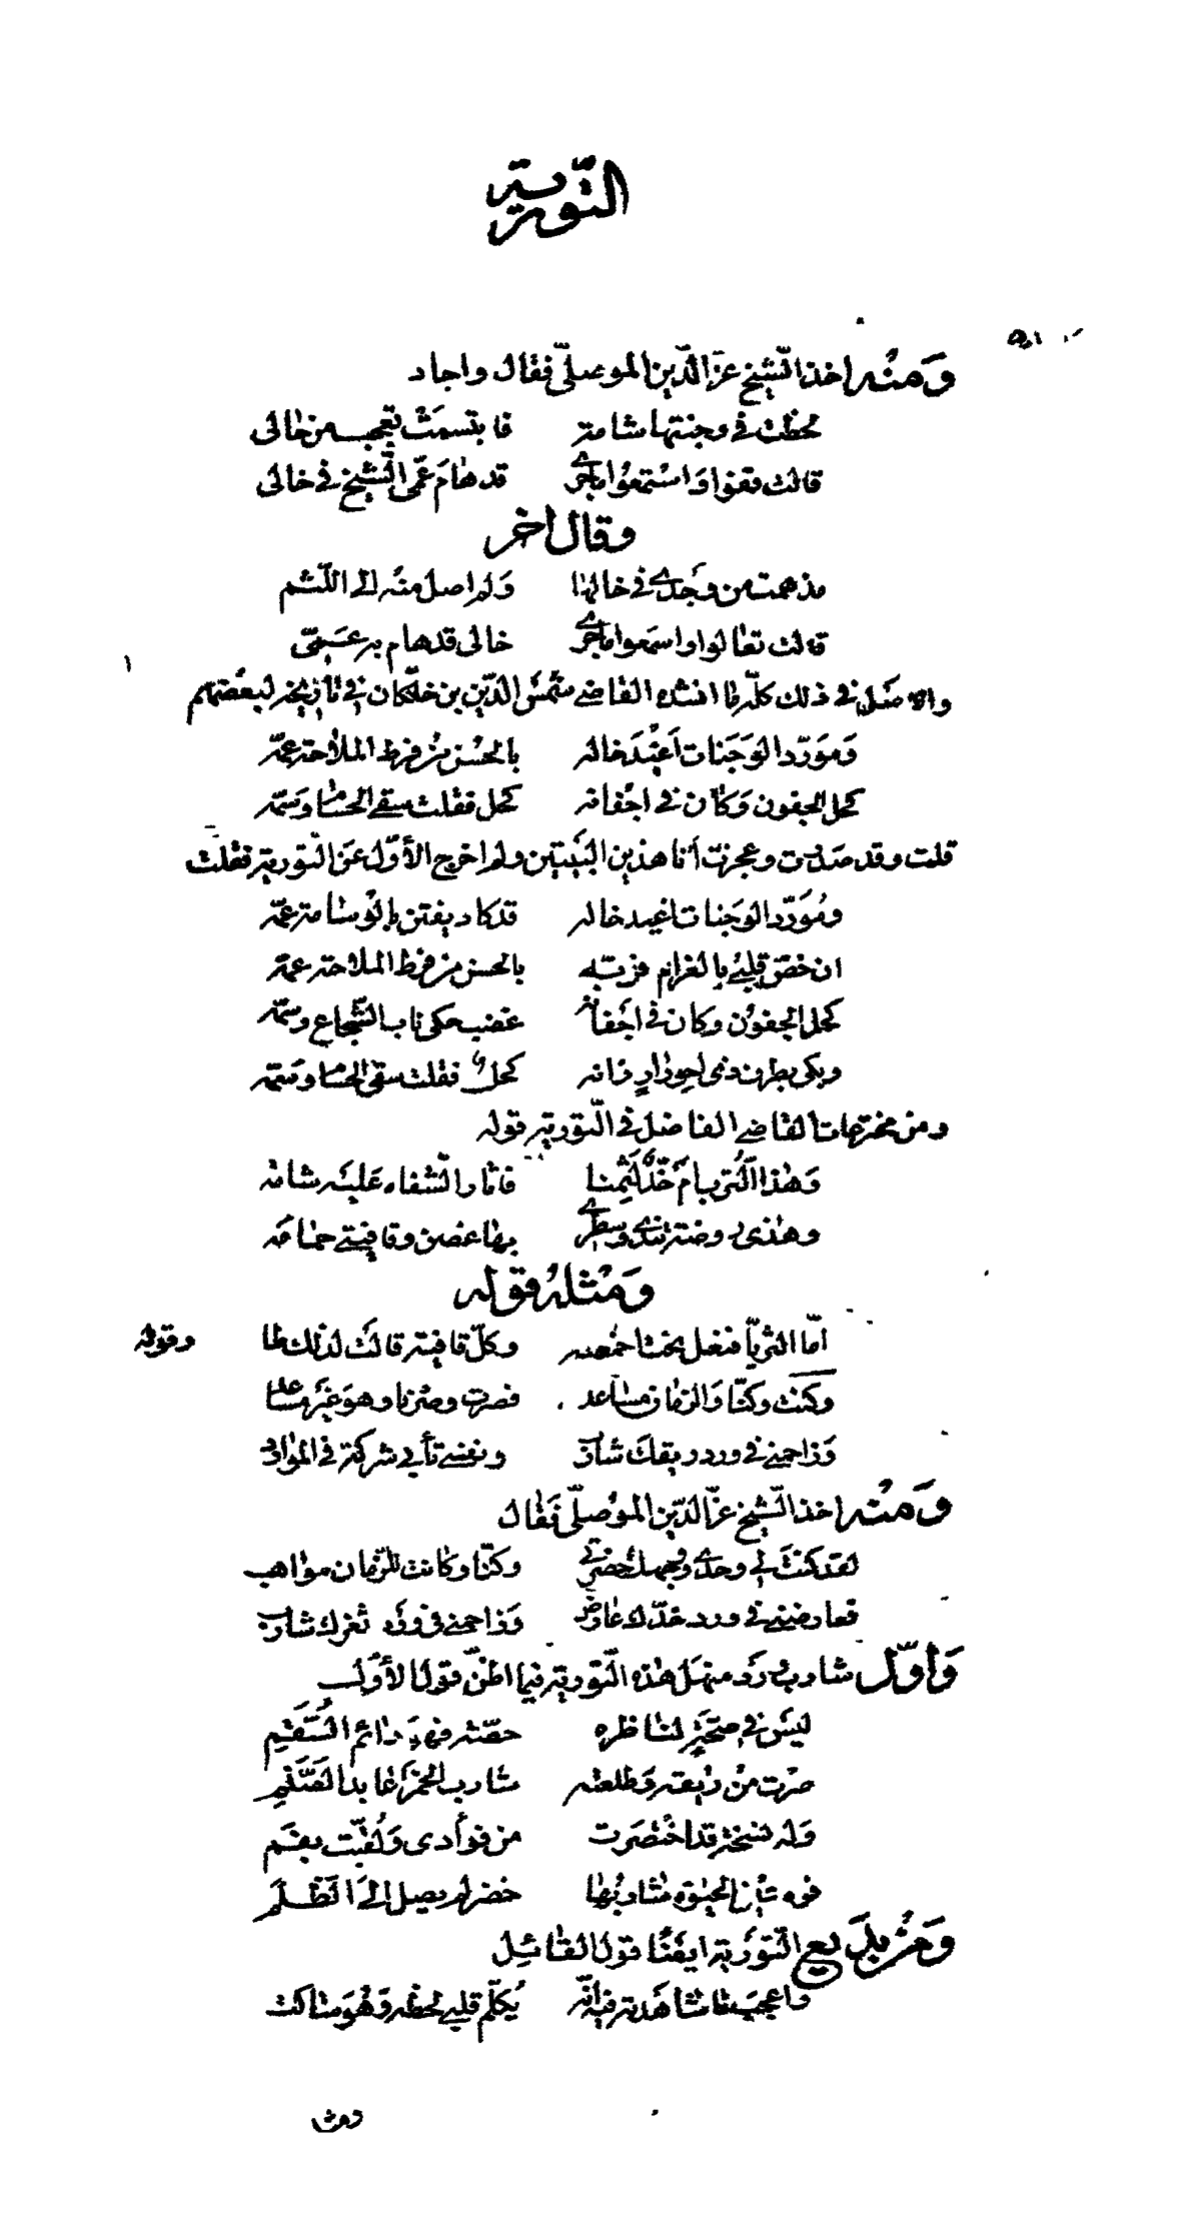 التورية
ومنه اخذ الشيخ عز الدين الموصلي فقال واجاد
لحظت في وجنتها شامة فابتسمت تعجب من خالى
قالت قفوا واستمعوا ما جرى قد هام عمى الشيخ في خالى
وقال اخر
مذ همت من وجدى في خالها ولم اصل منه الى اللثم
قالت تعالوا واسمعوا ما جرى خالى قد هام به عمى
والاصل في ذلك كله ما انشده القاضي شمس الدين بن خلكان في تاريخه لبعضهم
ومورد الوجنات اغيد خاله بالحسن من فرط الملاحة عمه
كحل الجفون وكان في اجفانه كحل فقلت سقى الحشا وسمه
قلت وقد صدرت وعجزت أنا هذين البيتين ولم اخرج الأول عن التورية فقلت
ومورد الوجنات اغيد خاله قد كاد يفتن بالوسامة عمه
ان خص قلبي بالغرام فربه بالحسن من فرط الملاحة عمه
كحل الجفون وكان في اجفانه عضب حكى ناب الشجاع وسمه
وبكى بطرف ذى احورار زانه كحل فقلت سقى الحشا وسمه
ومن مخترعات القاضي الفاضل في التورية قوله
وهذا الترب أم خد لثمنا فاثار الشفاه عليه شامه
وهذى روضة تندى وسطرى بها غصن وقافيتي حمامه
ومثله قوله
أما الثريا فنعل تحت اخمصه وكل قافية قالت لذلك طا
وقوله
وكنت وكنا والزمان مساعد فصرت وصرنا وهو غير مساعد
وزاحمنى في ورد ريقك شارب ونفسى تأبى شركة في الموارد
ومنه اخذ الشيخ عز الدين الموصلي فقال
لقد كنت لى وحدى ووجهك حضرتى وكنا وكانت للزمان مواهب
فعارضنى في ورد خدك عارض وزاحمنى في ورد ثغرك شارب
واول شارب ورد منهل هذه التورية فيما اظن قول الأول
ليس في صحة لناظره حصته فهو دائم السقم
حرت من ريقه وطلعته شارب الخمر عابد الصنم
وله نسخة قد اختصرت من فوأدى ولقبت بفم
فوه عين الحيوة شاربها خضر لم يصل الى الظلم
ومن بديع التورية ايضا قول القائل
واعجب ما شاهدته فيه انه يكلم قلبى لحظه وهو ساكت
ومن